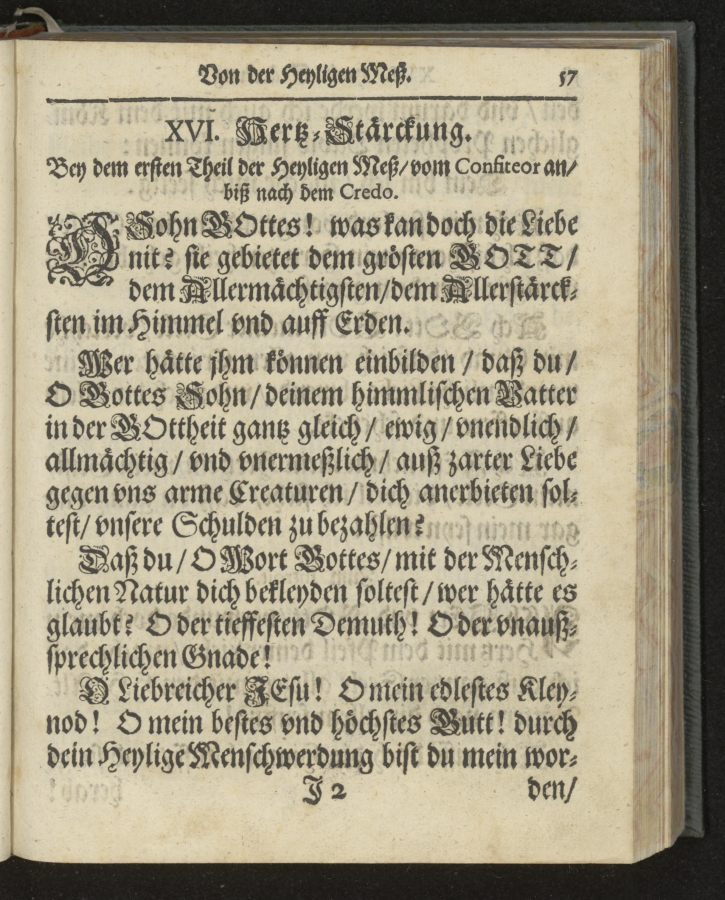 Von der Heyligen Meß. 57
XVI. Hertz-Stärckung.
Bey dem ersten Theil der Heyligen Meß/ vom Confiteor an/
biß nach dem Credo.
O Sohn GOttes! was kan doch die Liebe
nit? sie gebietet dem grösten GOTT/
dem Allermächtigsten/ dem Allerstärck-
sten im Himmel vnd auff Erden.
Wer hätte jhm können einbilden / daß du/
O Gottes Sohn/ deinem himmlischen Vatter
in der GOttheit gantz gleich / ewig / vnendlich /
allmächtig / vnd vnermeßlich / auß zarter Liebe
gegen vns arme Creaturen / dich anerbieten sol-
test/ vnsere Schulden zu bezahlen?
Daß du / O Wort Gottes/ mit der Mensch-
lichen Natur dich bekleyden soltest / wer hätte es
glaubt? O der tieffesten Demuth! O der vnauß-
sprechlichen Gnade!
O Liebreicher JEsu! O mein edlestes Kley-
nod! O mein bestes vnd höchstes Gutt! durch
dein Heylige Menschwerdung bist du mein wor-
J 2 den/